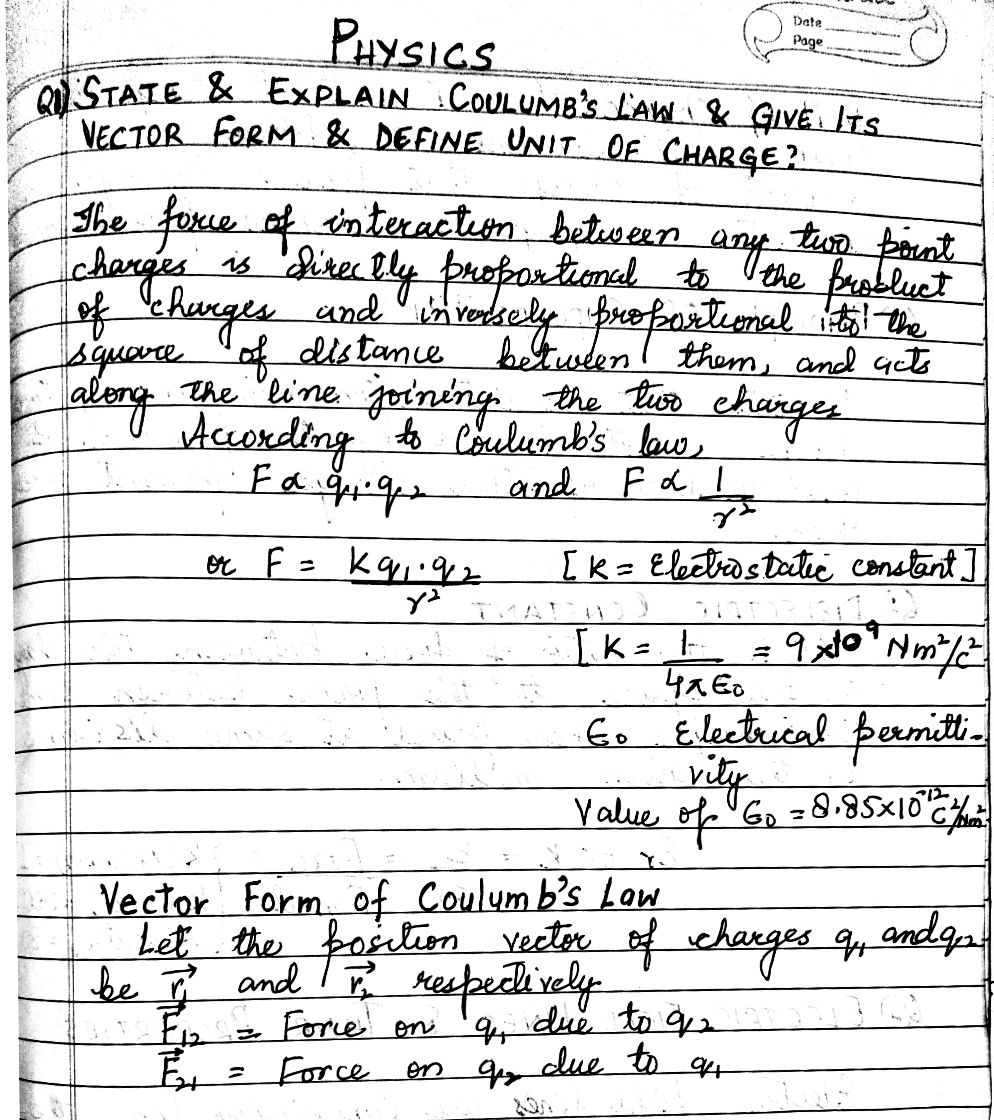 Date
Page
PHYSICS
Q1) STATE & EXPLAIN COULUMB'S LAW & GIVE ITS
VECTOR FORM & DEFINE UNIT OF CHARGE?
The force of interaction between any two point
charges is directly proportional to the product
of charges and inversely proportional to the
square of distance between them, and acts
along the line joining the two charges
According to Coulumb's law,
F ∝ q₁·q₂ and F ∝ 1/r²
or F = Kq₁·q₂/r² [K = Electrostatic constant]
[K = 1/4πϵ₀ = 9×10⁹ Nm²/C²
ϵ₀ Electrical permitti-
vity
Value of ϵ₀ = 8.85×10⁻¹² C²/Nm²
Vector Form of Coulumb's Law
Let the position vector of charges q₁ and q₂
be r₁⃗ and r₂⃗ respectively
F₁₂⃗ = Force on q₁ due to q₂
F₂₁⃗ = Force on q₂ due to q₁